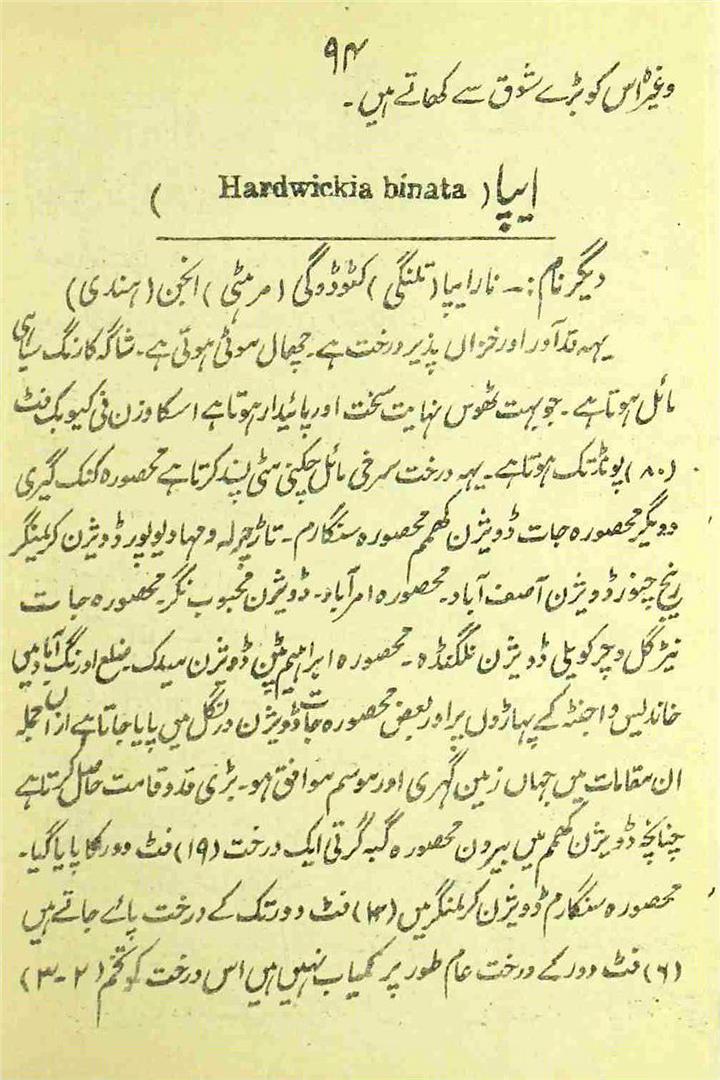 ۹۴
وغیرہ اس کو بڑے شوق سے کھاتے ہیں ۔
ایپا ( Hardwickia binata )
دیگر نام :۔ نارا یپا (تلنگی) کٹوڈوگی (مرہٹی) انجن (ہندی)
یہہ قدآور اور خزاں پذیر درخت ہے۔ چھال موٹی ہوتی ہے۔ شاگہ کا رنگ سیاہی
مائل ہوتا ہے ۔ جو بہت ٹھوس نہایت سخت اور پائیدار ہوتا ہے اسکا وزن فی کیوبک فٹ
(۸۰) پونڈ تک ہوتا ہے۔ یہہ درخت سرخی مائل چکنی مٹی پسند کرتا ہے محصورہ کنک گیری
و دیگر محصورہ جات ڈویژن کھمم محصورہ سنگارم ۔ تاڑ چرلہ و مہادیوپور ڈویژن کریمنگر
رینج چنور ڈویژن آصف آباد۔ محصورہ امرآباد۔ ڈویژن محبوب نگر۔ محصورہ جات
نیڑگل و چرکوپلی ڈویژن نلگنڈہ ۔ محصورہ ابراہیم پٹن ڈویژن میدک ۔ ضلع اورنگ آباد میں
خاندیس و اجنٹہ کے پہاڑوں پر اور بعض محصورہ جات ڈویژن ورنگل میں پایا جاتا ہے ازاں جملہ
ان مقامات میں جہاں زمین گہری اور موسم موافق ہو۔ بڑی قد و قامت حاصل کرتا ہے
چنانچہ ڈویژن کھمم میں بیرون محصورہ گبہ گرتی ایک درخت (۱۹) فٹ دور کا پایا گیا۔
محصورہ سنگارم ڈویژن کریمنگر میں (۱۲) فٹ دور تک کے درخت پائے جاتے ہیں
(۶) فٹ دور کے درخت عام طور پر کمیاب نہیں ہیں اس درخت کو تخم (۲-۳)